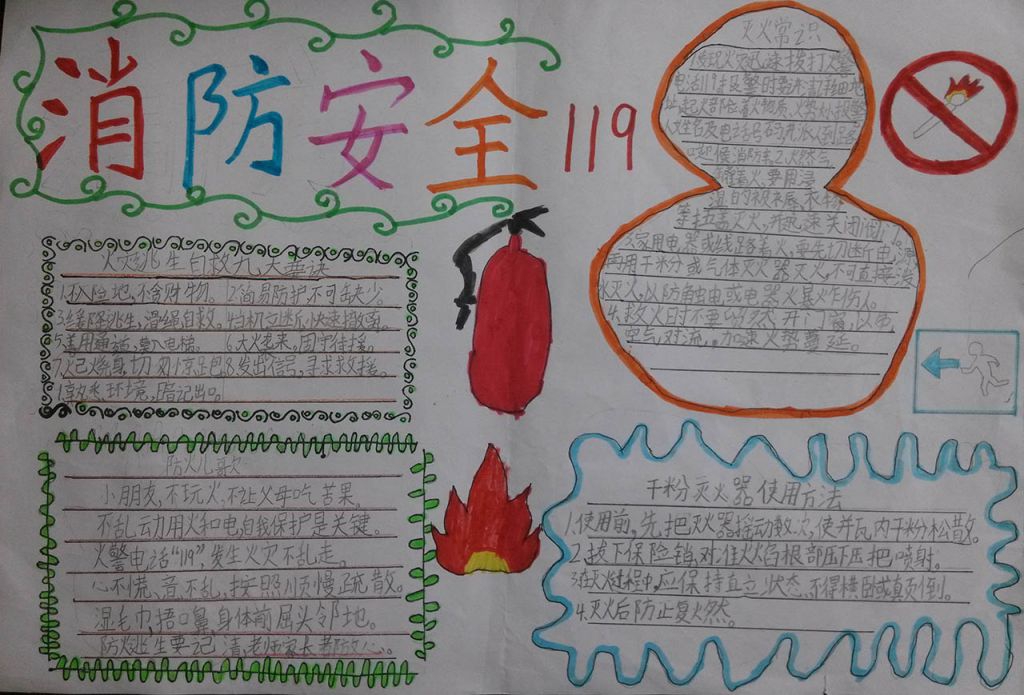 消防安全 119
火灾逃生自救九大要诀
1.入险地,不舍财物。2简易防护,不可缺少。
3缓降逃生,滑绳自救。4当机立断,快速撤离。
5善用通道,莫入电梯。6.大火袭来,固守待援。
7火已烧身,切勿惊跑8发出信号,寻求救援。
1熟悉环境,暗记出口。
防火儿歌
小朋友,不玩火.不让父母吃苦果。
不乱动用火和电,自我保护是关键。
火警电话“119”,发生火灾不乱走。
心不慌,意不乱,按照顺慢疏散。
湿毛巾捂口鼻,身体前屈头邻地。
防火逃生要记清,老师家长都放心。
灭火常识
1发现火灾迅速拨打火警
电话119.报警时要
湿的被褥
等捂盖灭火,并迅速关闭阀门。
3.家用电器或线路着火,要先切断电
再用干粉或气体灭火器灭火,不可直接泼
水灭火,以防触电或电器火暴炸伤人。
4.救火时不要贸然开门窗,以免
空气对流,加速火势蔓延。
干粉灭火器使用方法
1.使用前,先把灭火器摇动数次,使并瓦内干粉松散。
2.拔下保险销,对准火焰根部压下压把喷射。
3在灭火过程中,应保持直立状态,不得横卧或颠倒。
4.灭火后防止复火然。